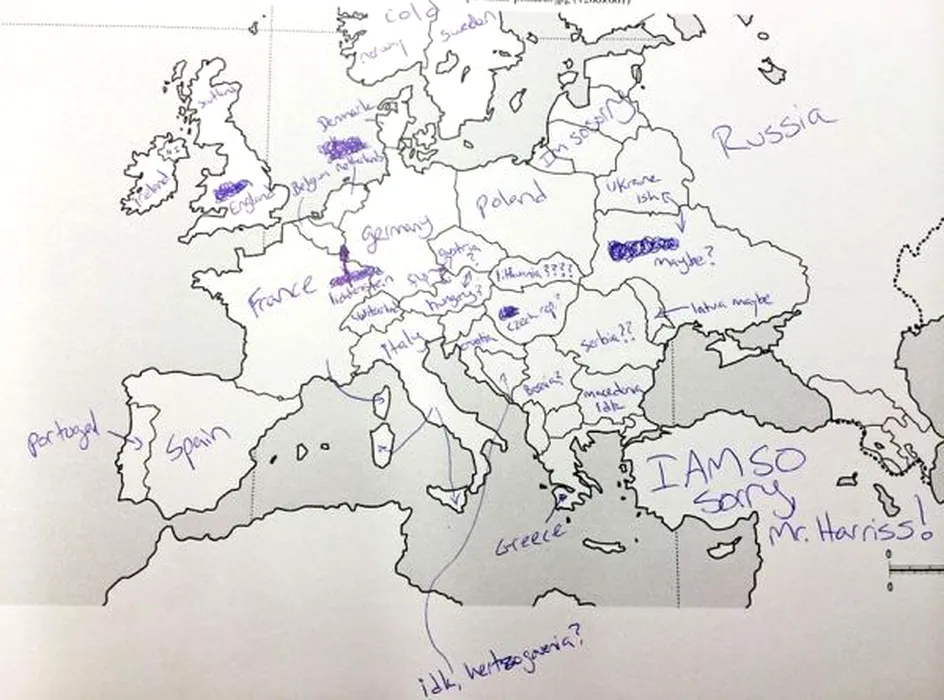 cold
norway
sweden
Russia
Denmark
Im so sorry
Ireland
England
Belgium
Ukraine
ish
Poland
germany
maybe?
austria
?
lithuania????
France
lichtenstein
hungary?
latvia maybe
czech rep?
Italy
croatia
serbia??
Bosnia?
macedonia
idk
portugal
Spain
I AM SO
Sorry,
Mr. Harriss!
Greece
0
0
idk, hertzogovenia?